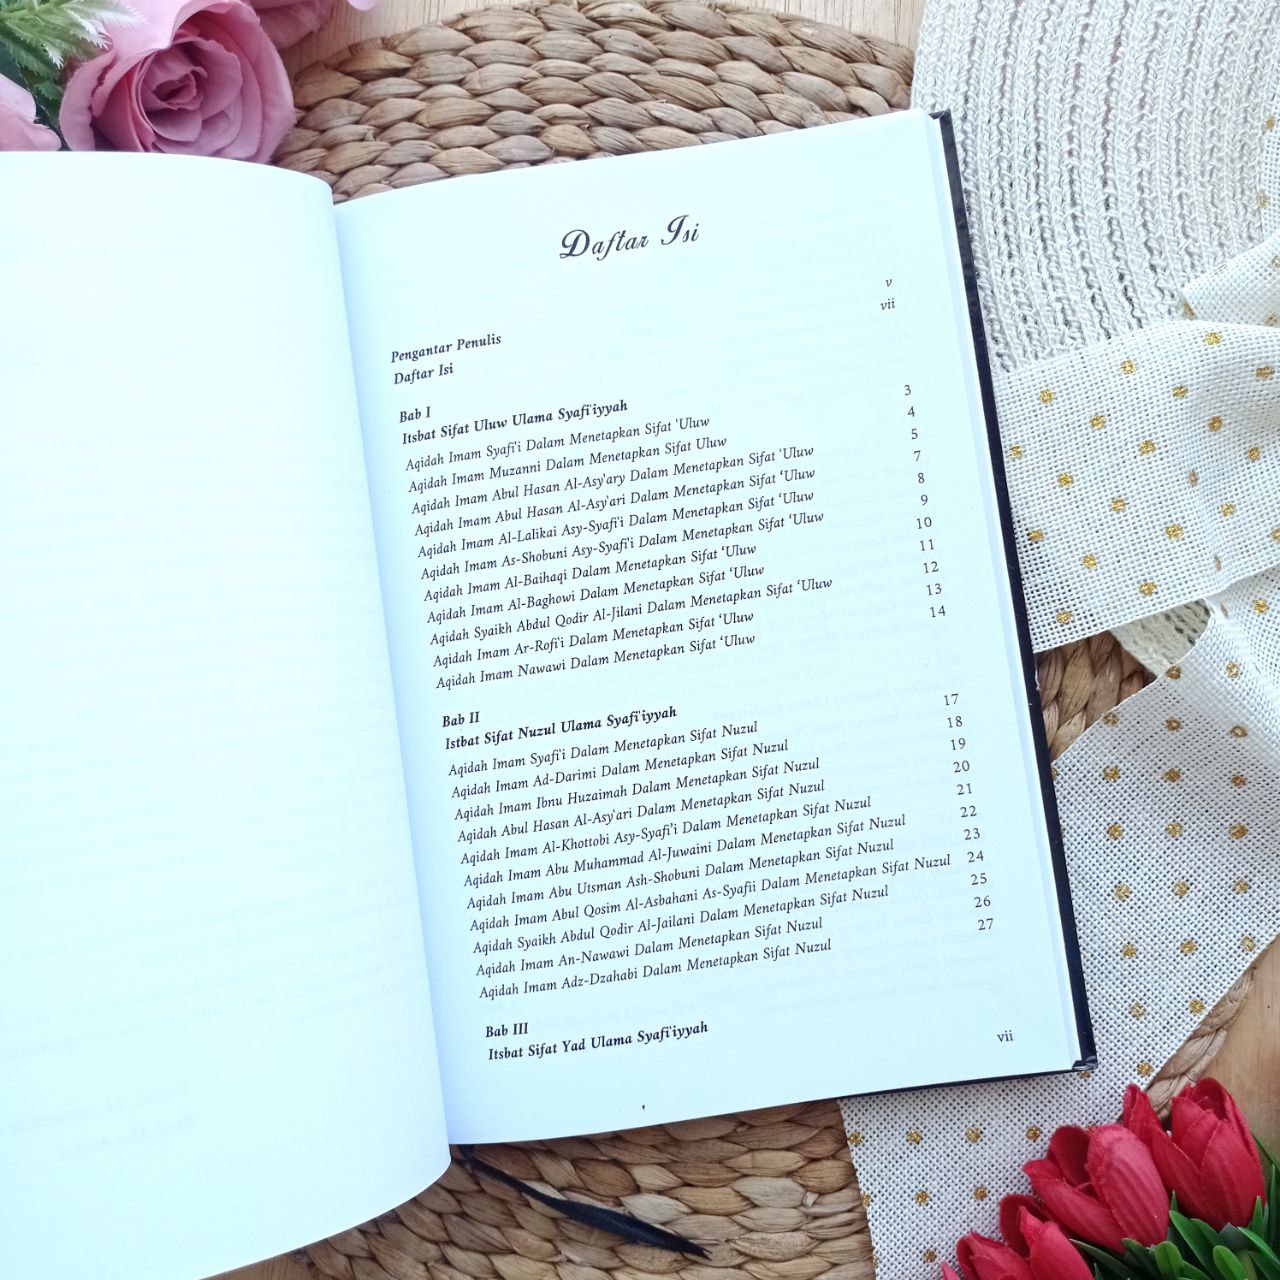 Daftar Isi
Pengantar Penulis v
Daftar Isi vii
Bab I
Itsbat Sifat Uluw Ulama Syafi'iyyah
Aqidah Imam Syafi'i Dalam Menetapkan Sifat 'Uluw 3
Aqidah Imam Muzanni Dalam Menetapkan Sifat Uluw 4
Aqidah Imam Abul Hasan Al-Asy'ary Dalam Menetapkan Sifat 'Uluw 5
Aqidah Imam Abul Hasan Al-Asy'ari Dalam Menetapkan Sifat 'Uluw 7
Aqidah Imam Al-Lalikai Asy-Syafi'i Dalam Menetapkan Sifat 'Uluw 8
Aqidah Imam As-Shobuni Asy-Syafi'i Dalam Menetapkan Sifat 'Uluw 9
Aqidah Imam Al-Baihaqi Dalam Menetapkan Sifat 'Uluw 10
Aqidah Imam Al-Baghowi Dalam Menetapkan Sifat 'Uluw 11
Aqidah Syaikh Abdul Qodir Al-Jilani Dalam Menetapkan Sifat 'Uluw 12
Aqidah Imam Ar-Rofi'i Dalam Menetapkan Sifat 'Uluw 13
Aqidah Imam Nawawi Dalam Menetapkan Sifat 'Uluw 14
Bab II
Istbat Sifat Nuzul Ulama Syafi'iyyah
Aqidah Imam Syafi'i Dalam Menetapkan Sifat Nuzul 17
Aqidah Imam Ad-Darimi Dalam Menetapkan Sifat Nuzul 18
Aqidah Imam Ibnu Huzaimah Dalam Menetapkan Sifat Nuzul 19
Aqidah Abul Hasan Al-Asy'ari Dalam Menetapkan Sifat Nuzul 20
Aqidah Imam Al-Khottobi Asy-Syafi'i Dalam Menetapkan Sifat Nuzul 21
Aqidah Imam Abu Muhammad Al-Juwaini Dalam Menetapkan Sifat Nuzul 22
Aqidah Imam Abu Utsman Ash-Shobuni Dalam Menetapkan Sifat Nuzul 23
Aqidah Imam Abul Qosim Al-Asbahani As-Syafii Dalam Menetapkan Sifat Nuzul 24
Aqidah Syaikh Abdul Qodir Al-Jailani Dalam Menetapkan Sifat Nuzul 25
Aqidah Imam An-Nawawi Dalam Menetapkan Sifat Nuzul 26
Aqidah Imam Adz-Dzahabi Dalam Menetapkan Sifat Nuzul 27
Bab III
Itsbat Sifat Yad Ulama Syafi'iyyah
vii